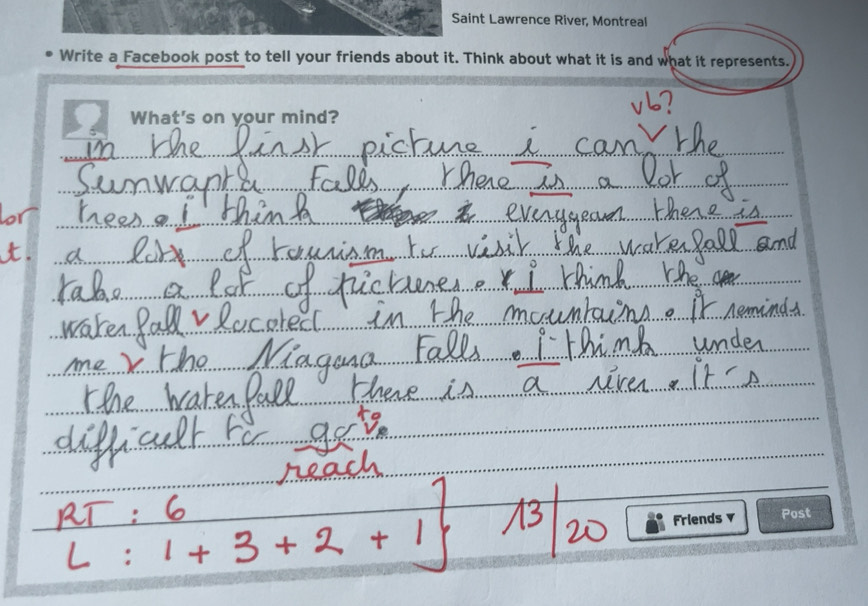 Saint Lawrence River, Montreal
• Write a Facebook post to tell your friends about it. Think about what it is and what it represents.
What's on your mind?
vb?
in the first picture i can the
Sunwapta Falls, there is a lot of
trees. i think everyyear there is
a lot of tourism to visit the waterfall and
take a lot of pictures. i think the
waterfall located in the mountains. it reminds
me the Niagara Falls. i think under
the waterfall there is a river. it's
difficult to go to.
reach
RT : 6
L : 1 + 3 + 2 + 1 } 13/20
Friends
Post